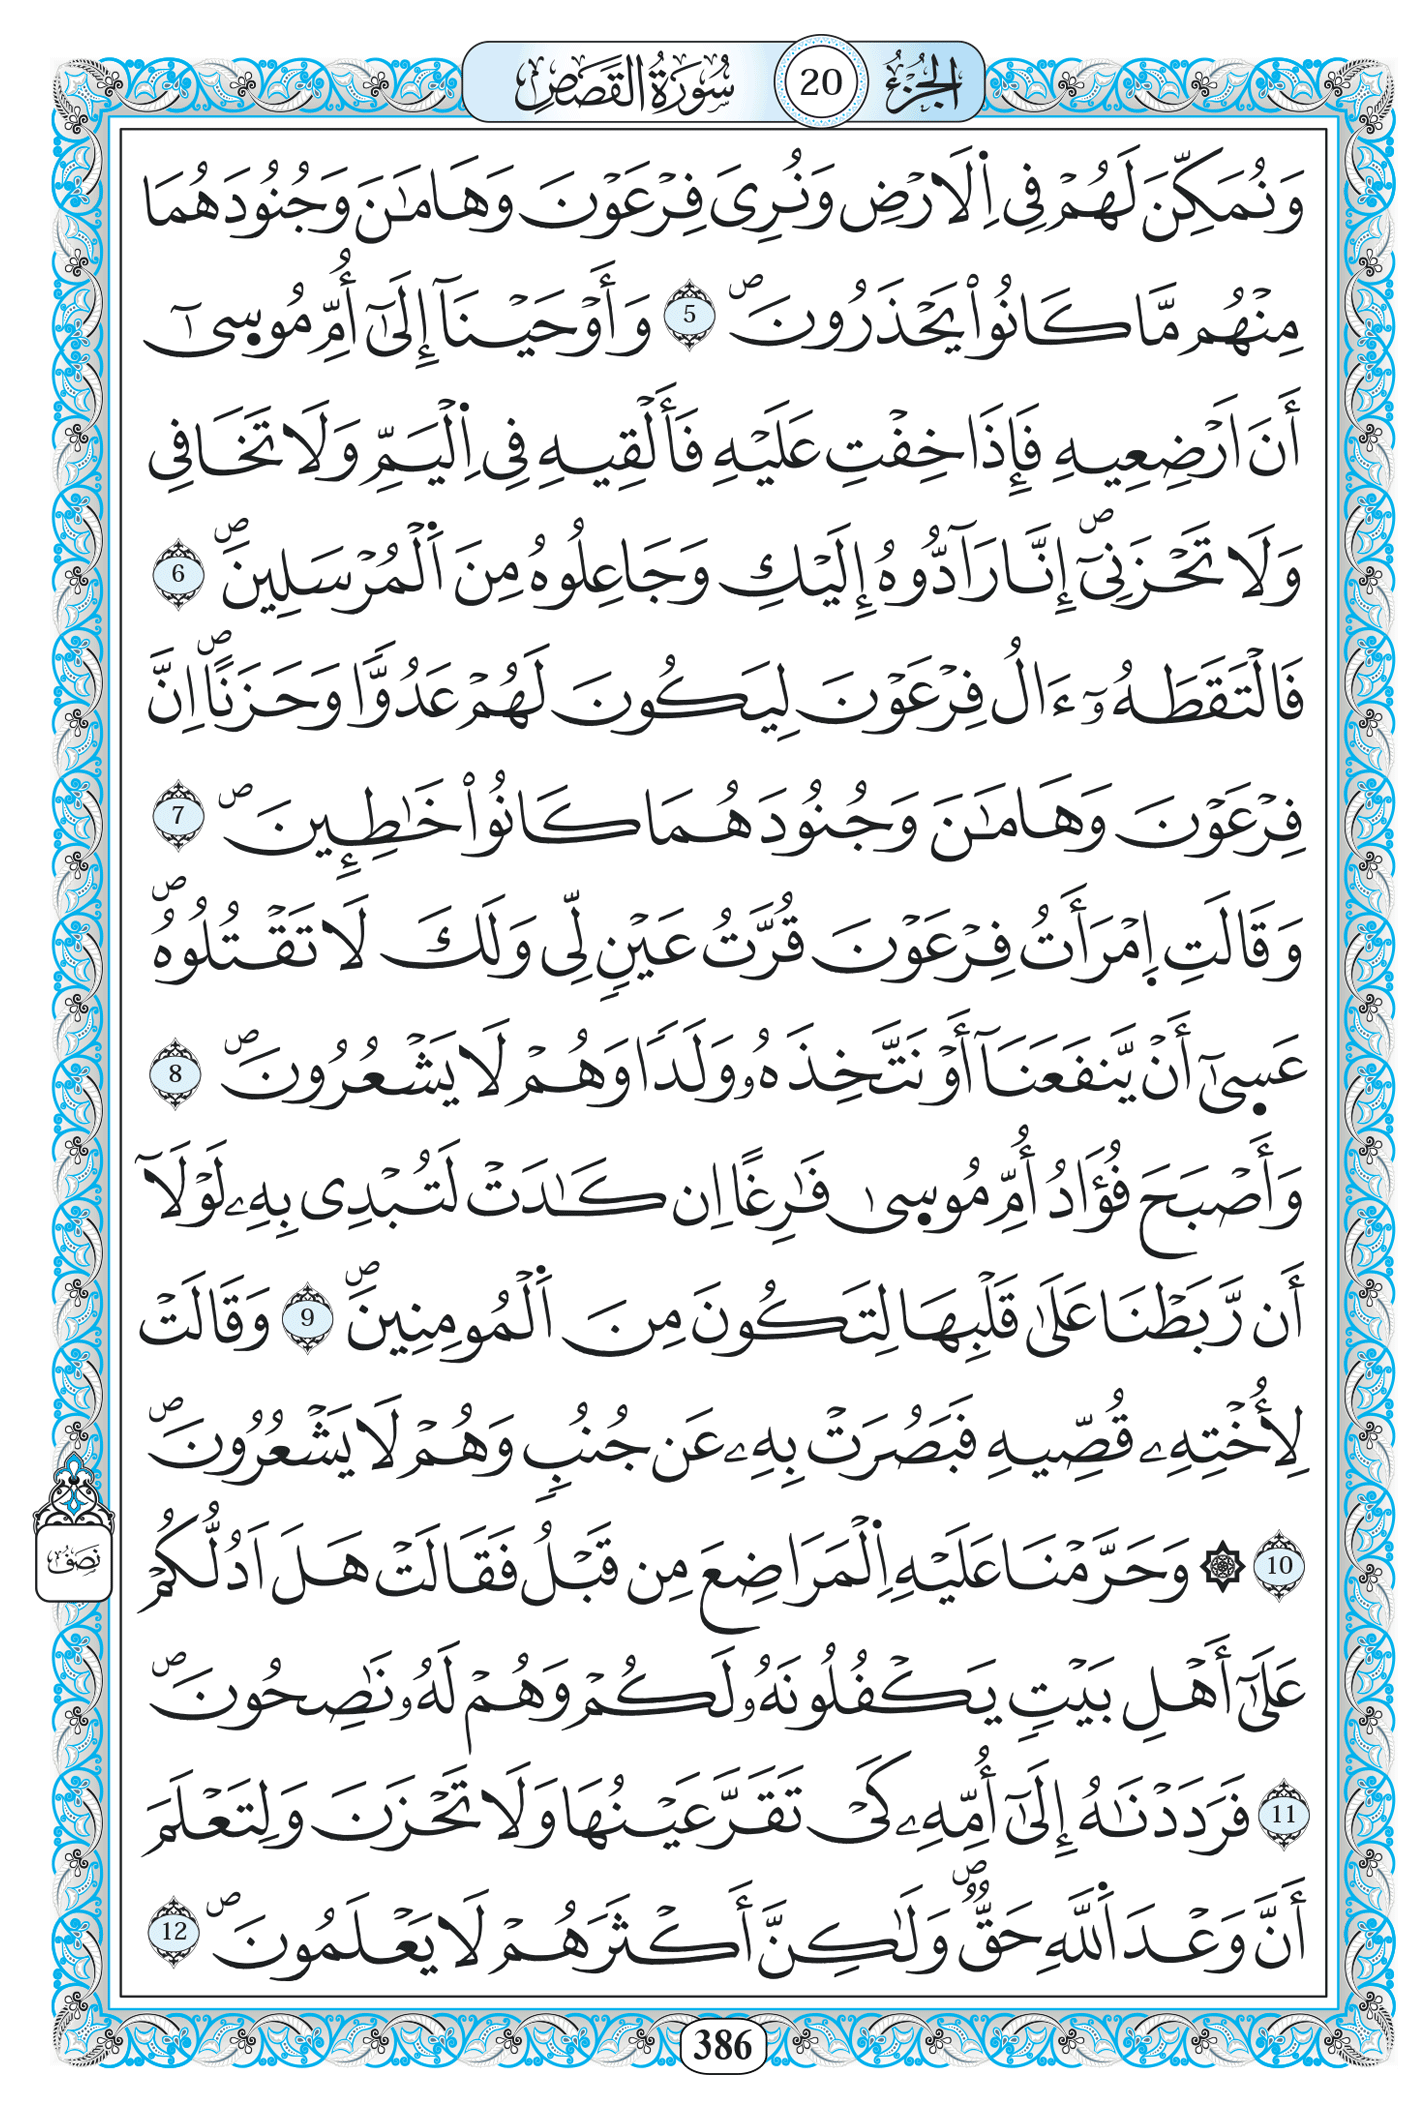 الجُزْءُ 20 سُورَةُ القَصَصِ
وَنُمَكِّنَ لَهُمْ فِي اِ۬لَارْضِ وَنُرِيَ فِرْعَوْنَ وَهَامَٰنَ وَجُنُودَهُمَا
مِنْهُم مَّا كَانُواْ يَحْذَرُونَۖ 5 وَأَوْحَيْنَآ إِلَىٰٓ أُمِّ مُوس۪ىٰٓ
أَنَ اَرْضِعِيهِ فَإِذَا خِفْتِ عَلَيْهِ فَأَلْقِيهِ فِي اِ۬لْيَمِّ وَلَا تَخَافِي
وَلَا تَحْزَنِيٓۖ إِنَّا رَآدُّوهُ إِلَيْكِ وَجَاعِلُوهُ مِنَ اَ۬لْمُرْسَلِينَۖ 6
فَالْتَقَطَهُۥٓ ءَالُ فِرْعَوْنَ لِيَكُونَ لَهُمْ عَدُوّٗا وَحَزَناًۖ اِنَّ
فِرْعَوْنَ وَهَامَٰنَ وَجُنُودَهُمَا كَانُواْ خَٰطِـِٕينَۖ 7
وَقَالَتِ اِ۪مْرَأَتُ فِرْعَوْنَ قُرَّتُ عَيْنٖ لِّي وَلَكَ لَا تَقْتُلُوهُۖ
عَس۪ىٰٓ أَنْ يَّنفَعَنَآ أَوْ نَتَّخِذَهُۥ وَلَدٗا وَهُمْ لَا يَشْعُرُونَۖ 8
وَأَصْبَحَ فُؤَادُ أُمِّ مُوس۪ىٰ فَٰرِغاً اِن كَٰدَتْ لَتُبْدِي بِهِۦ لَوْلَآ
أَن رَّبَطْنَا عَلَىٰ قَلْبِهَا لِتَكُونَ مِنَ اَ۬لْمُومِنِينَۖ 9 وَقَالَتْ
لِأُخْتِهِۦ قُصِّيهِ فَبَصُرَتْ بِهِۦ عَن جُنُبٖ وَهُمْ لَا يَشْعُرُونَۖ
10 ۞ وَحَرَّمْنَا عَلَيْهِ اِ۬لْمَرَاضِعَ مِن قَبْلُ فَقَالَتْ هَلَ اَدُلُّكُمْ
نِصْفُ
عَلَىٰٓ أَهْلِ بَيْتٖ يَكْفُلُونَهُۥ لَكُمْ وَهُمْ لَهُۥ نَٰصِحُونَۖ
11 فَرَدَدْنَٰهُ إِلَىٰٓ أُمِّهِۦ كَيْ تَقَرَّ عَيْنُهَا وَلَا تَحْزَنَ وَلِتَعْلَمَ
أَنَّ وَعْدَ اَ۬للَّهِ حَقّٞۖ وَلَٰكِنَّ أَكْثَرَهُمْ لَا يَعْلَمُونَۖ 12
386